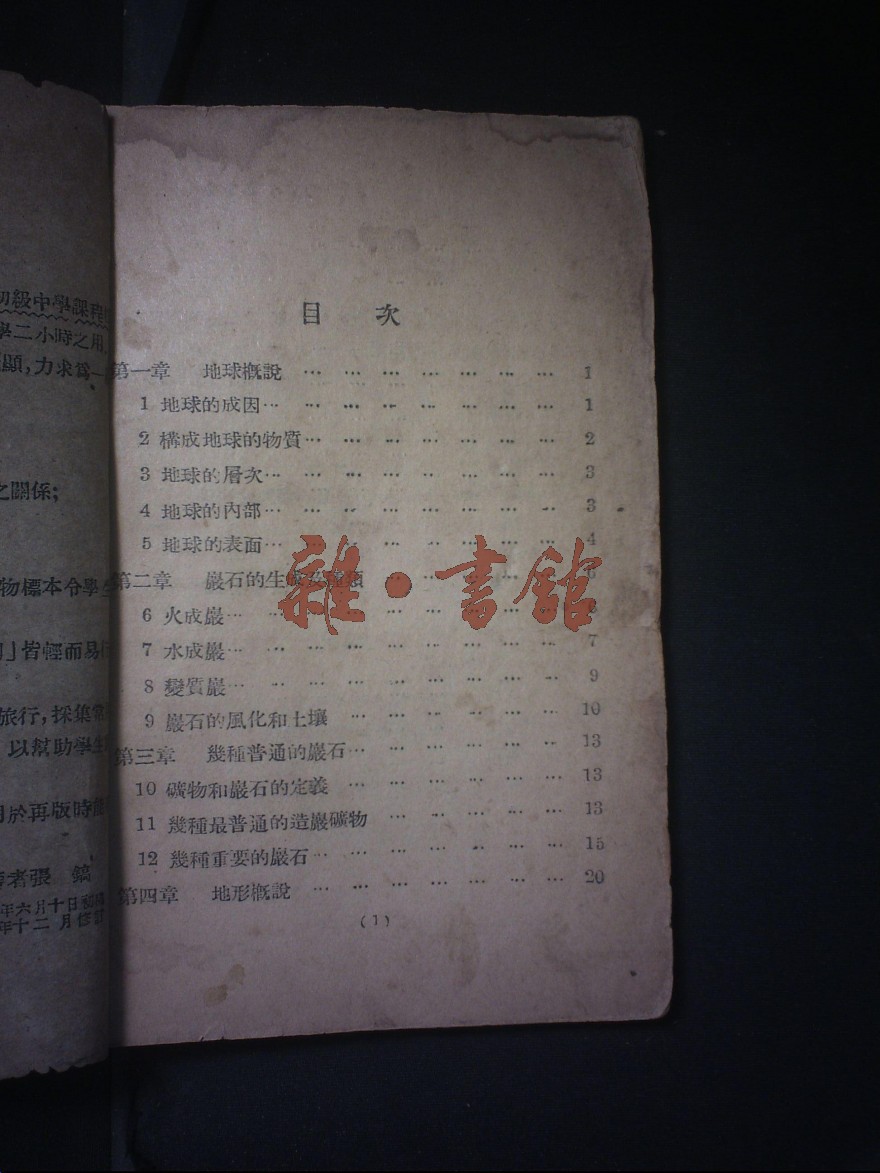 初級中學課程
學二小時之用
顯,力求爲一
之關係;
物標本令學生
」皆輕而易
旅行,採集
以幫助學生
於再版時
者張 鎬
年六月十日
年十二月修訂
目 次
第一章 地球概說 … … … … … … … 1
1 地球的成因… … … … … … … … 1
2 構成地球的物質… … … … … … … 2
3 地球的層次… … … … … … … … 3
4 地球的內部… … … … … … … … 3
5 地球的表面… … … … … … … … 4
第二章 巖石的生成及種類 … … … … …
6 火成巖… … … … … … … … …
7 水成巖… … … … … … … … … 7
8 變質巖… … … … … … … … … 9
9 巖石的風化和土壤 … … … … … … 10
第三章 幾種普通的巖石… … … … … … 13
10 礦物和巖石的定義 … … … … … … 13
11 幾種最普通的造巖礦物 … … … … … 13
12 幾種重要的巖石… … … … … … … 15
第四章 地形概說 … … … … … … … 20
(1)
雜·書館